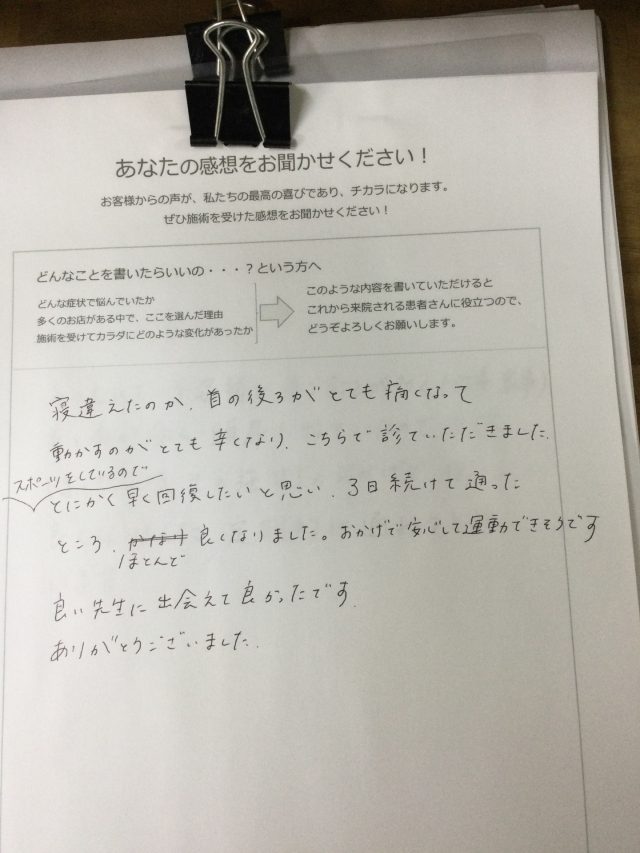 あなたの感想をお聞かせください！
お客様からの声が、私たちの最高の喜びであり、チカラになります。
ぜひ施術を受けた感想をお聞かせください！
どんなことを書いたらいいの・・・？という方へ
どんな症状で悩んでいたか
多くのお店がある中で、ここを選んだ理由
施術を受けてカラダにどのような変化があったか
このような内容を書いていただけると
これから来院される患者さんに役立つので、
どうぞよろしくお願いします。
寝違えたのか、首の後ろがとても痛くなって
動かすのがとても辛くなり、こちらで診ていただきました。
スポーツをしているので
とにかく早く回復したいと思い、3日続けて通った
ところ、かなり良くなりました。おかげで安心して運動できそうです
ほとんど
良い先生に出会えて良かったです。
ありがとうございました。